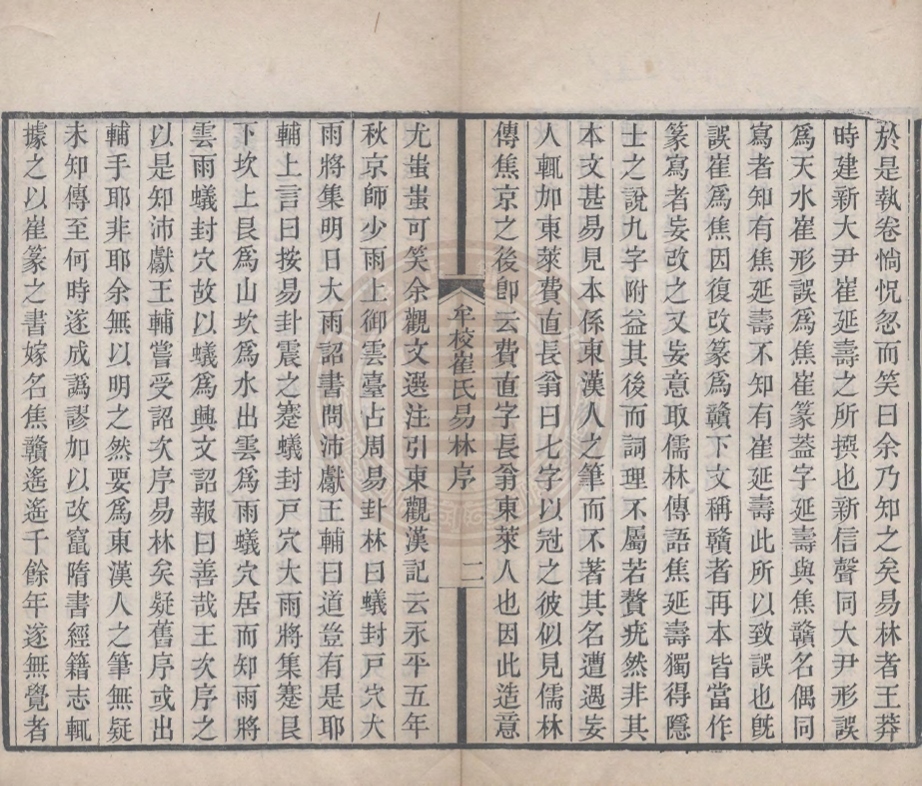 於是執卷惝怳忽而笑曰余乃知之矣易林者王莽
時建新大尹崔延壽之所撰也新信聲同大尹形誤
爲天水崔形誤爲焦崔篆蓋字延壽與焦贛名偶同
寫者知有焦延壽不知有崔延壽此所以致誤也旣
誤崔爲焦因復改篆爲贛下文稱贛者再本皆當作
篆寫者妄改之又妄意取儒林傳語焦延壽獨得隱
士之說九字附益其後而詞理不屬若贅疣然非其
本文甚易見本係東漢人之筆而不著其名遭遇妄
人輒加東萊費直長翁曰七字以冠之彼似見儒林
傳焦京之後卽云費直字長翁東萊人也因此造意
牟校崔氏易林序 二
尤蚩蚩可笑余觀文選注引東觀漢記云永平五年
秋京師少雨上御雲臺占周易卦林曰蟻封戸穴大
雨將集明日大雨詔書問沛獻王輔曰道豈有是耶
輔上言曰按易卦震之蹇蟻封戸穴大雨將集蹇艮
下坎上艮爲山坎爲水出雲爲雨蟻穴居而知雨將
雲雨蟻封穴故以蟻爲興文詔報曰善哉王次序之
以是知沛獻王輔嘗受詔次序易林矣疑舊序或出
輔手耶非耶余無以明之然要爲東漢人之筆無疑
未知傳至何時遂成譌謬加以改竄隋書經籍志輒
據之以崔篆之書嫁名焦贛遙遙千餘年遂無覺者